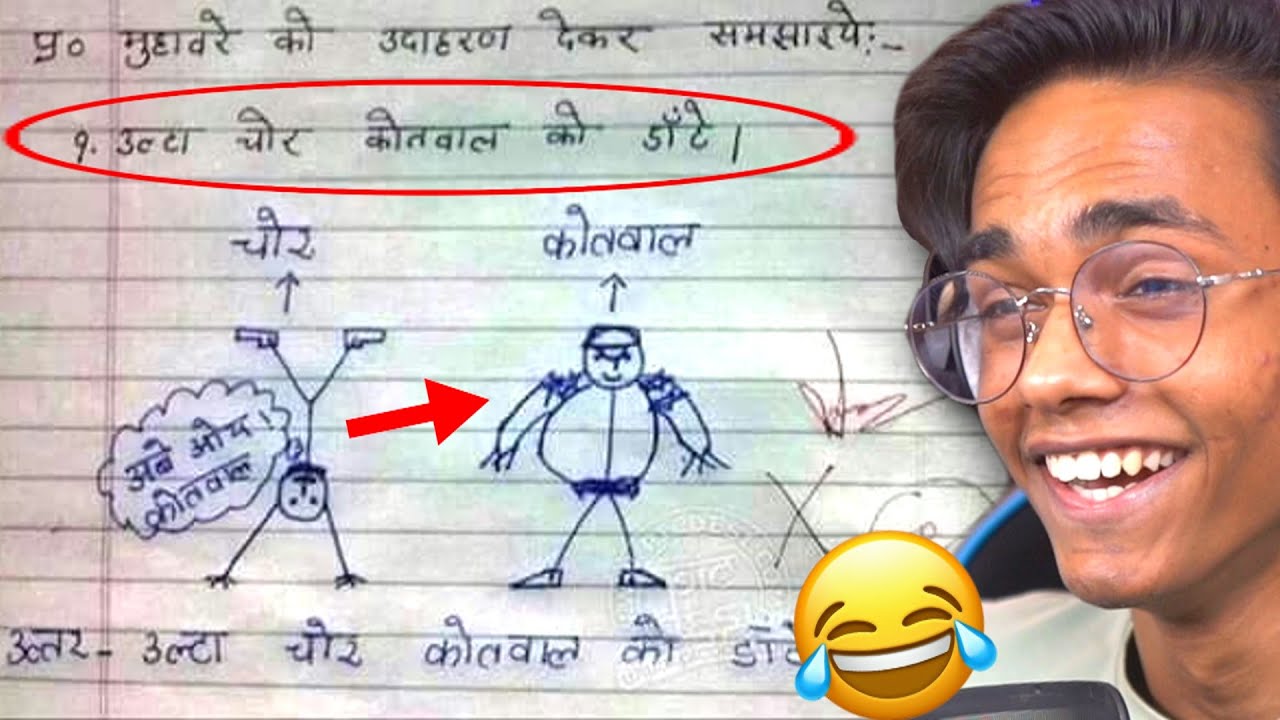 प्र० मुहावरे को उदाहरण देकर समझाइये:-
१. उल्टा चोर कोतवाल को डाँटे।
चोर
कोतवाल
अबे ओए।
कोतवाल
उत्तर- उल्टा चोर कोतवाल को